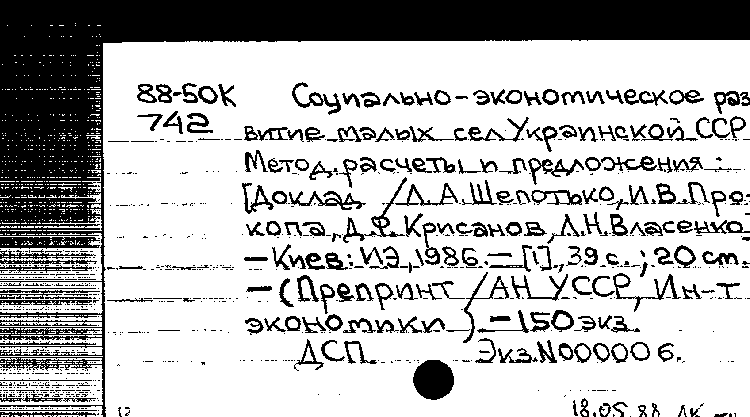 88-50К Социально-экономическое раз
742 витие малых сел Украинской ССР
Метод, расчеты и предложения:
[Доклад / Л.А.Шепотько, И.В.Про-
копа, Д.Ф.Крисанов, Л.Н.Власенко
— Киев: ИЭ, 1986. — [1], 39 с.; 20 cm.
— (Препринт / АН УССР, Ин-т
экономики ) — 150 экз.
ДСП. Экз.N000006.
12
18.05.88